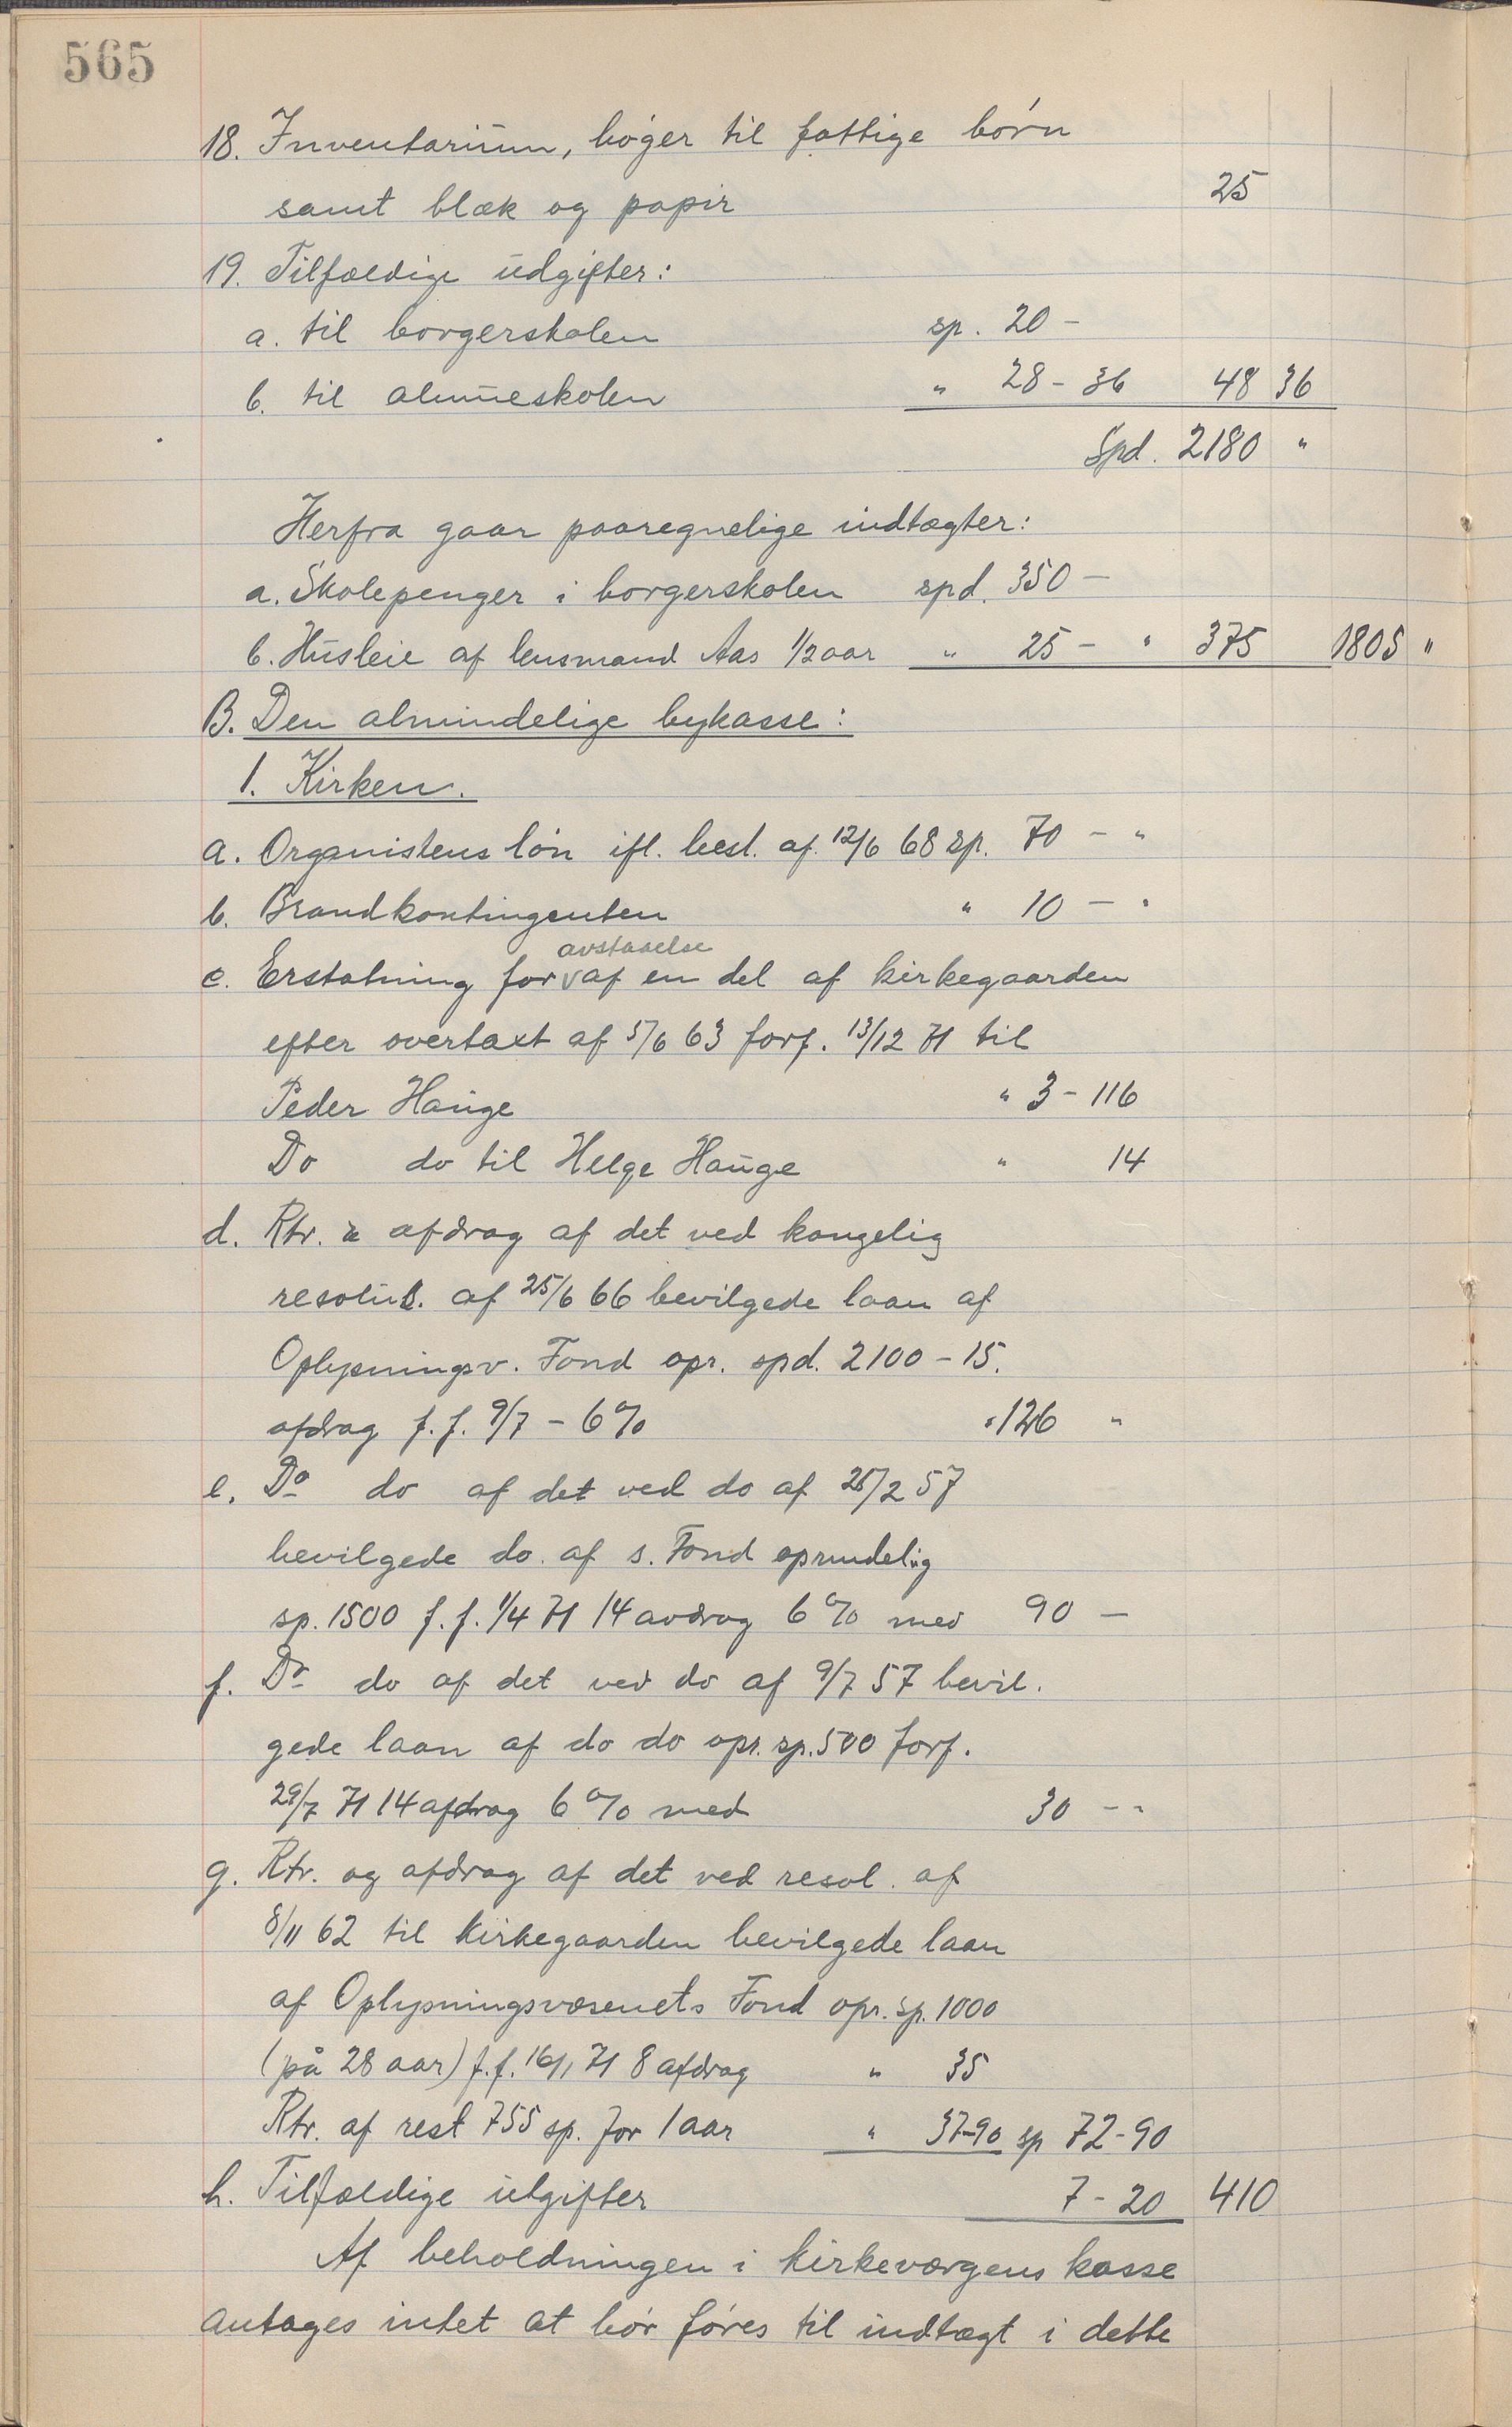 565
18. Inventarium, bøger til fattige børn
samt blæk og papir 25
19. Tilfældige udgifter:
a. til borgerskolen sp. 20 -
b. til almueskolen " 28 - 36 48 36
Spd. 2180 "
Herfra gaar paaregnelige indtægter:
a. Skolepenger i borgerskolen spd. 350 -
b. Husleie af lensmand Aas 1/2 aar " 25 - " 375 1805 "
B. Den almindelige bykasse:
1. Kirken.
a. Organistens løn ifl. besl. af 12/6 68 sp. 70 - "
b. Brandkontingenten " 10 - "
avstaaelse
c. Erstatning for af en del af kirkegaarden
efter overtaxt af 5/6 63 forf. 13/12 71 til
Peder Hauge " 3 - 116
Do do til Helge Hauge " 14
d. Rtr. & afdrag af det ved kongelig
resolut. af 25/6 66 bevilgede laan af
Oplysningsv. Fond opr. spd. 2100 - 15.
afdrag f. f. 9/7 - 6% " 126 "
e. Do do af det ved do af 25/2 57
bevilgede do. af s. Fond oprindelig
sp. 1500 f. f. 1/4 71 14 avdrag 6% med 90 -
f. Do do af det ved do af 9/7 57 bevil.
gede laan af do do opr. sp. 500 forf.
29/7 71 14 afdrag 6% med 30 - "
g. Rtr. og afdrag af det ved resol. af
8/11 62 til kirkegaarden bevilgede laan
af Oplysningsvæsenets Fond opr. sp. 1000
(på 28 aar) f. f. 16/1 71 8 afdrag " 35
Rtr. af rest 755 sp. for 1 aar " 37-90 sp 72-90
h. Tilfældige utgifter 7 - 20 410
Af beholdningen i kirkeværgens kasse
antages intet at bør føres til indtægt i dette